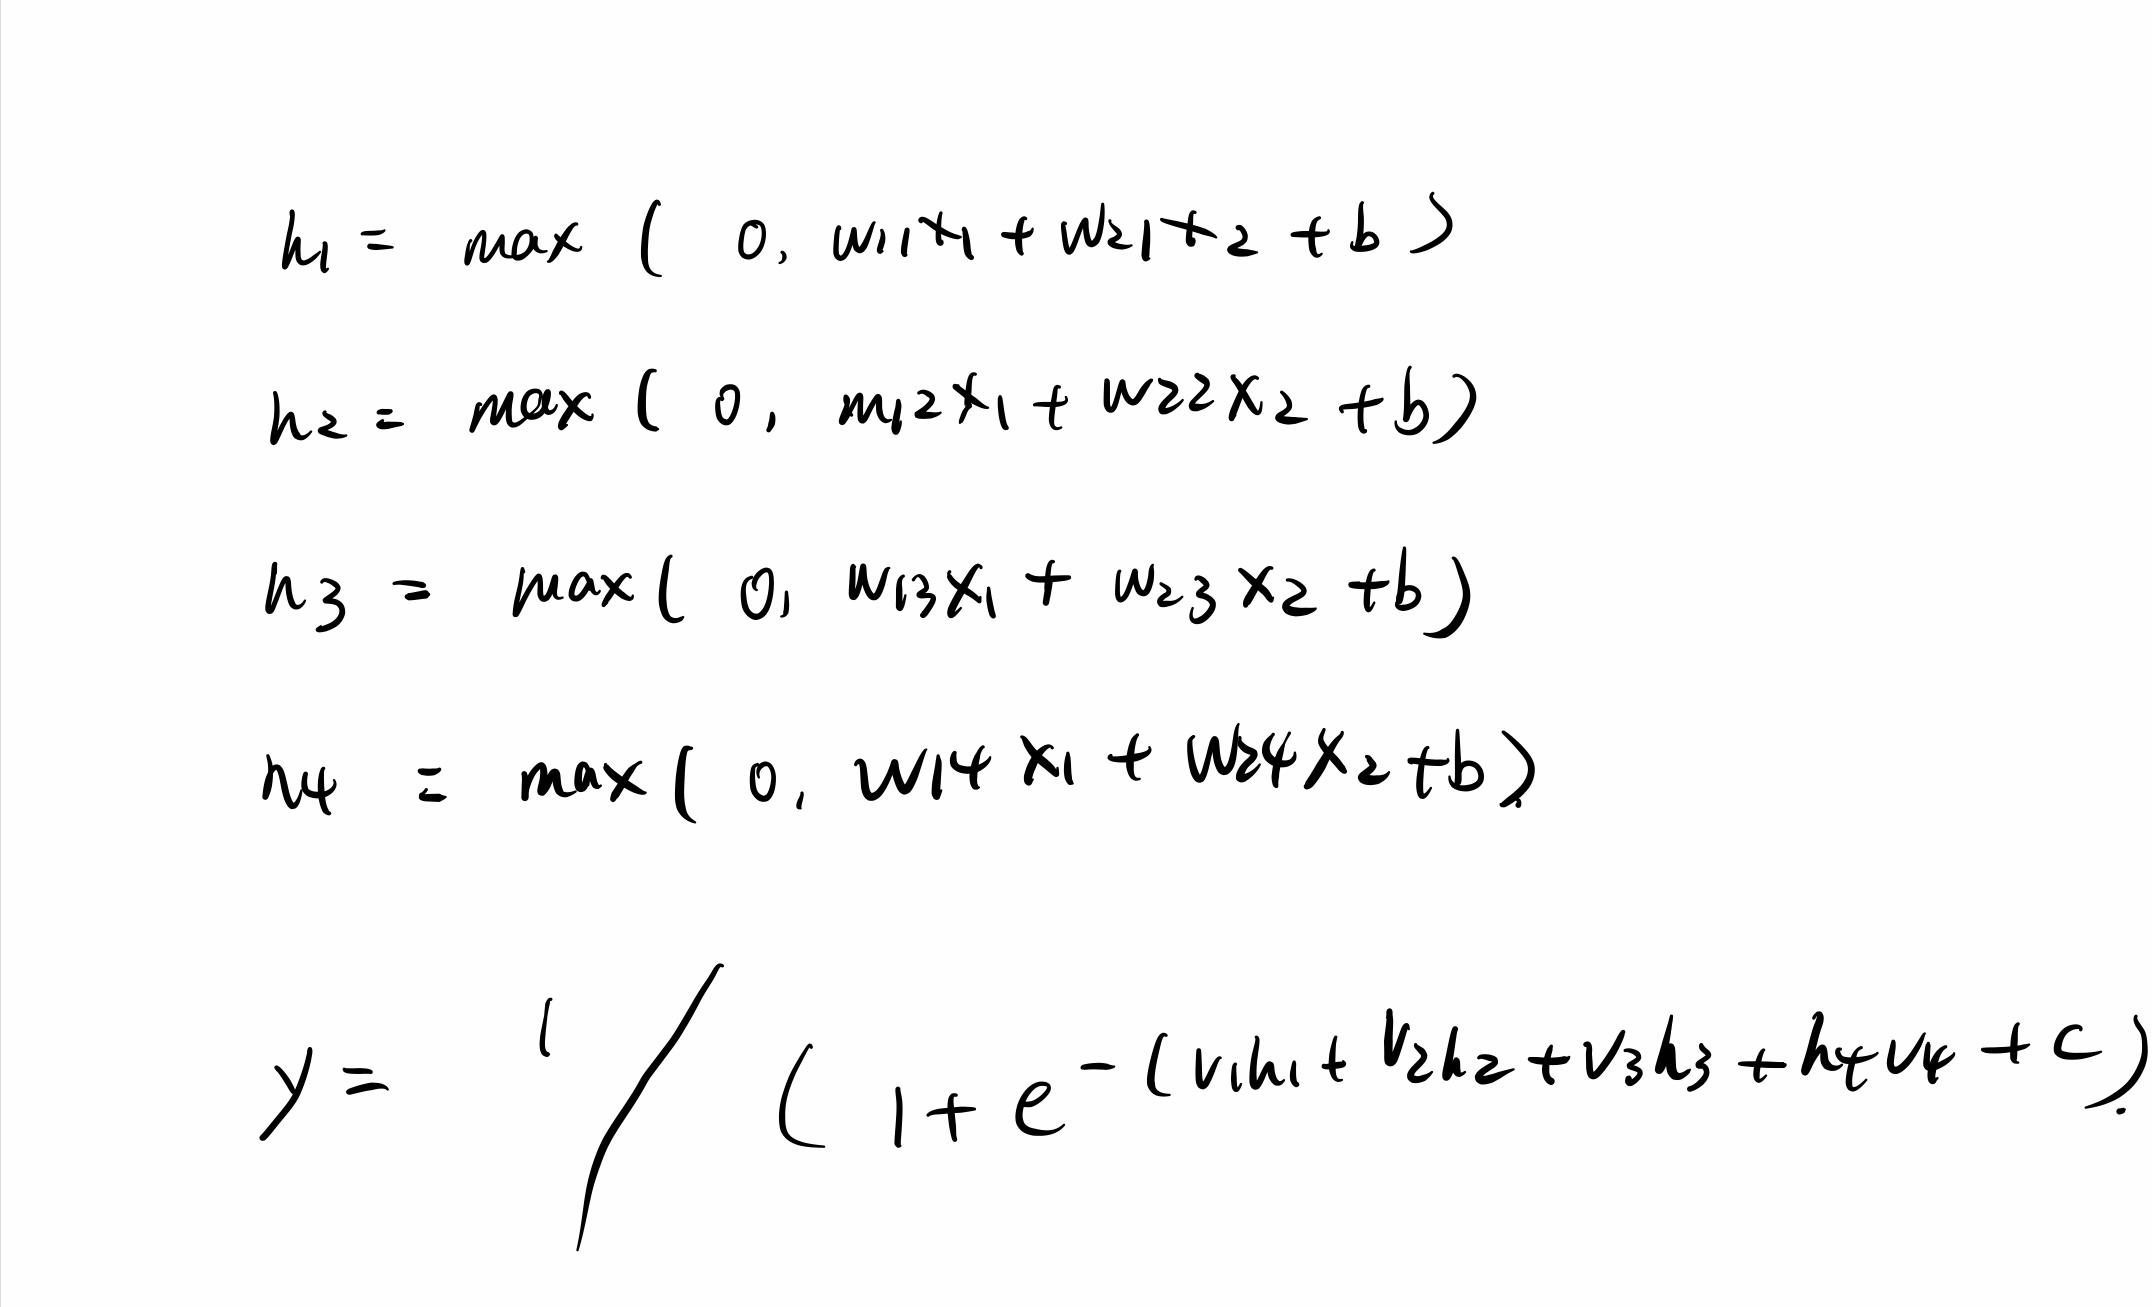 h1 = max ( 0, w11x1 + w21x2 + b )
h2 = max ( 0, m12x1 + w22x2 + b)
h3 = max( 0, w13x1 + w23x2 + b)
h4 = max( 0, w14x1 + w24x2 + b)
y = 1 / ( 1 + e^-(v1h1 + v2h2 + v3h3 + h4v4 + c)